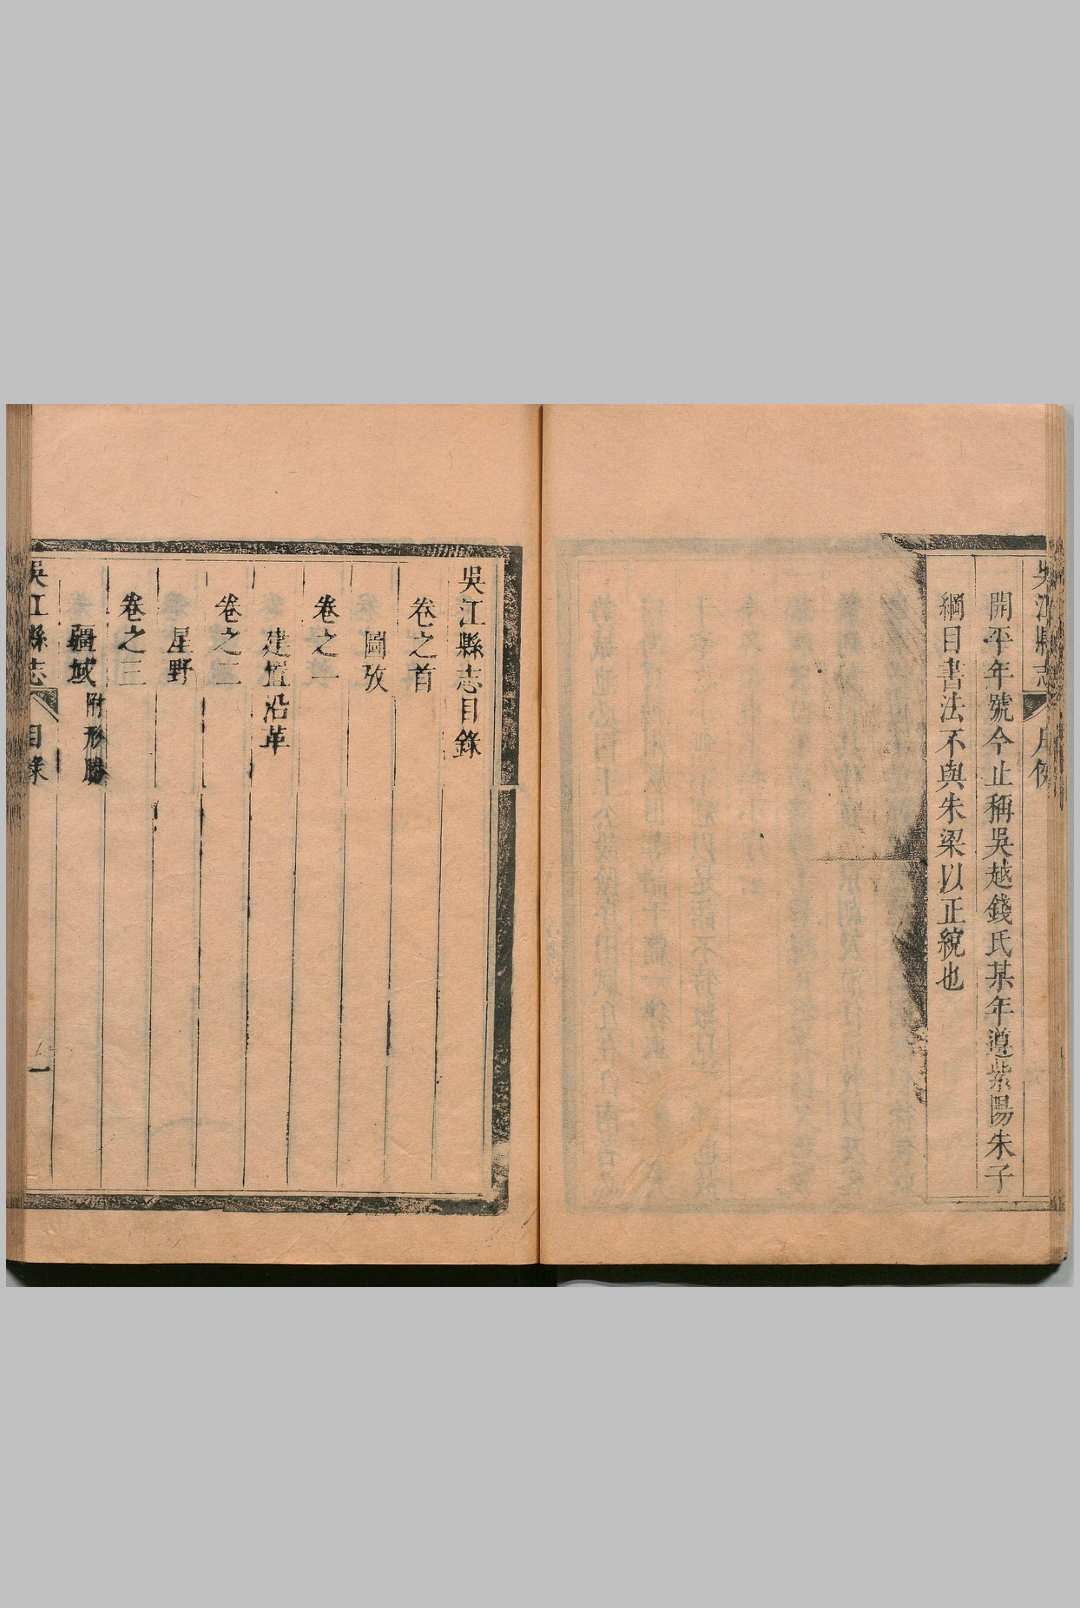 開平年號今止稱吳越錢氏某年遵紫陽朱子
綱目書法不與朱梁以正統也
吳江縣志目錄
卷之首
圖攷
卷之一
建置沿革
卷之二
星野
卷之三
疆域 附形勝
吳江縣志 目錄 一